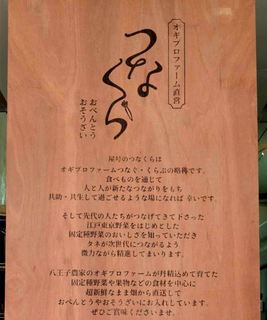 オギプロファーム直営
つなくら
おべんとう
おそうざい
屋号のつなくらは
オギプロファームつなぐ・くらぶの略称です。
食べものを通じて
人と人が新たなつながりをもち
共助・共生して過ごせるような場になれば 幸いです。
そして先代の人たちがつなげてきて下さった
江戸東京野菜をはじめとした
固定種野菜のおいしさを知っていただき
タネが次世代につながるよう
微力ながら精進してまいります。
八王子農家のオギプロファームが丹精込めて育てた
固定種野菜や果物などの食材を中心に
超新鮮なまま畑から直送して
おべんとうやおそうざいにお入れしています。
ぜひご賞味くださいませ。